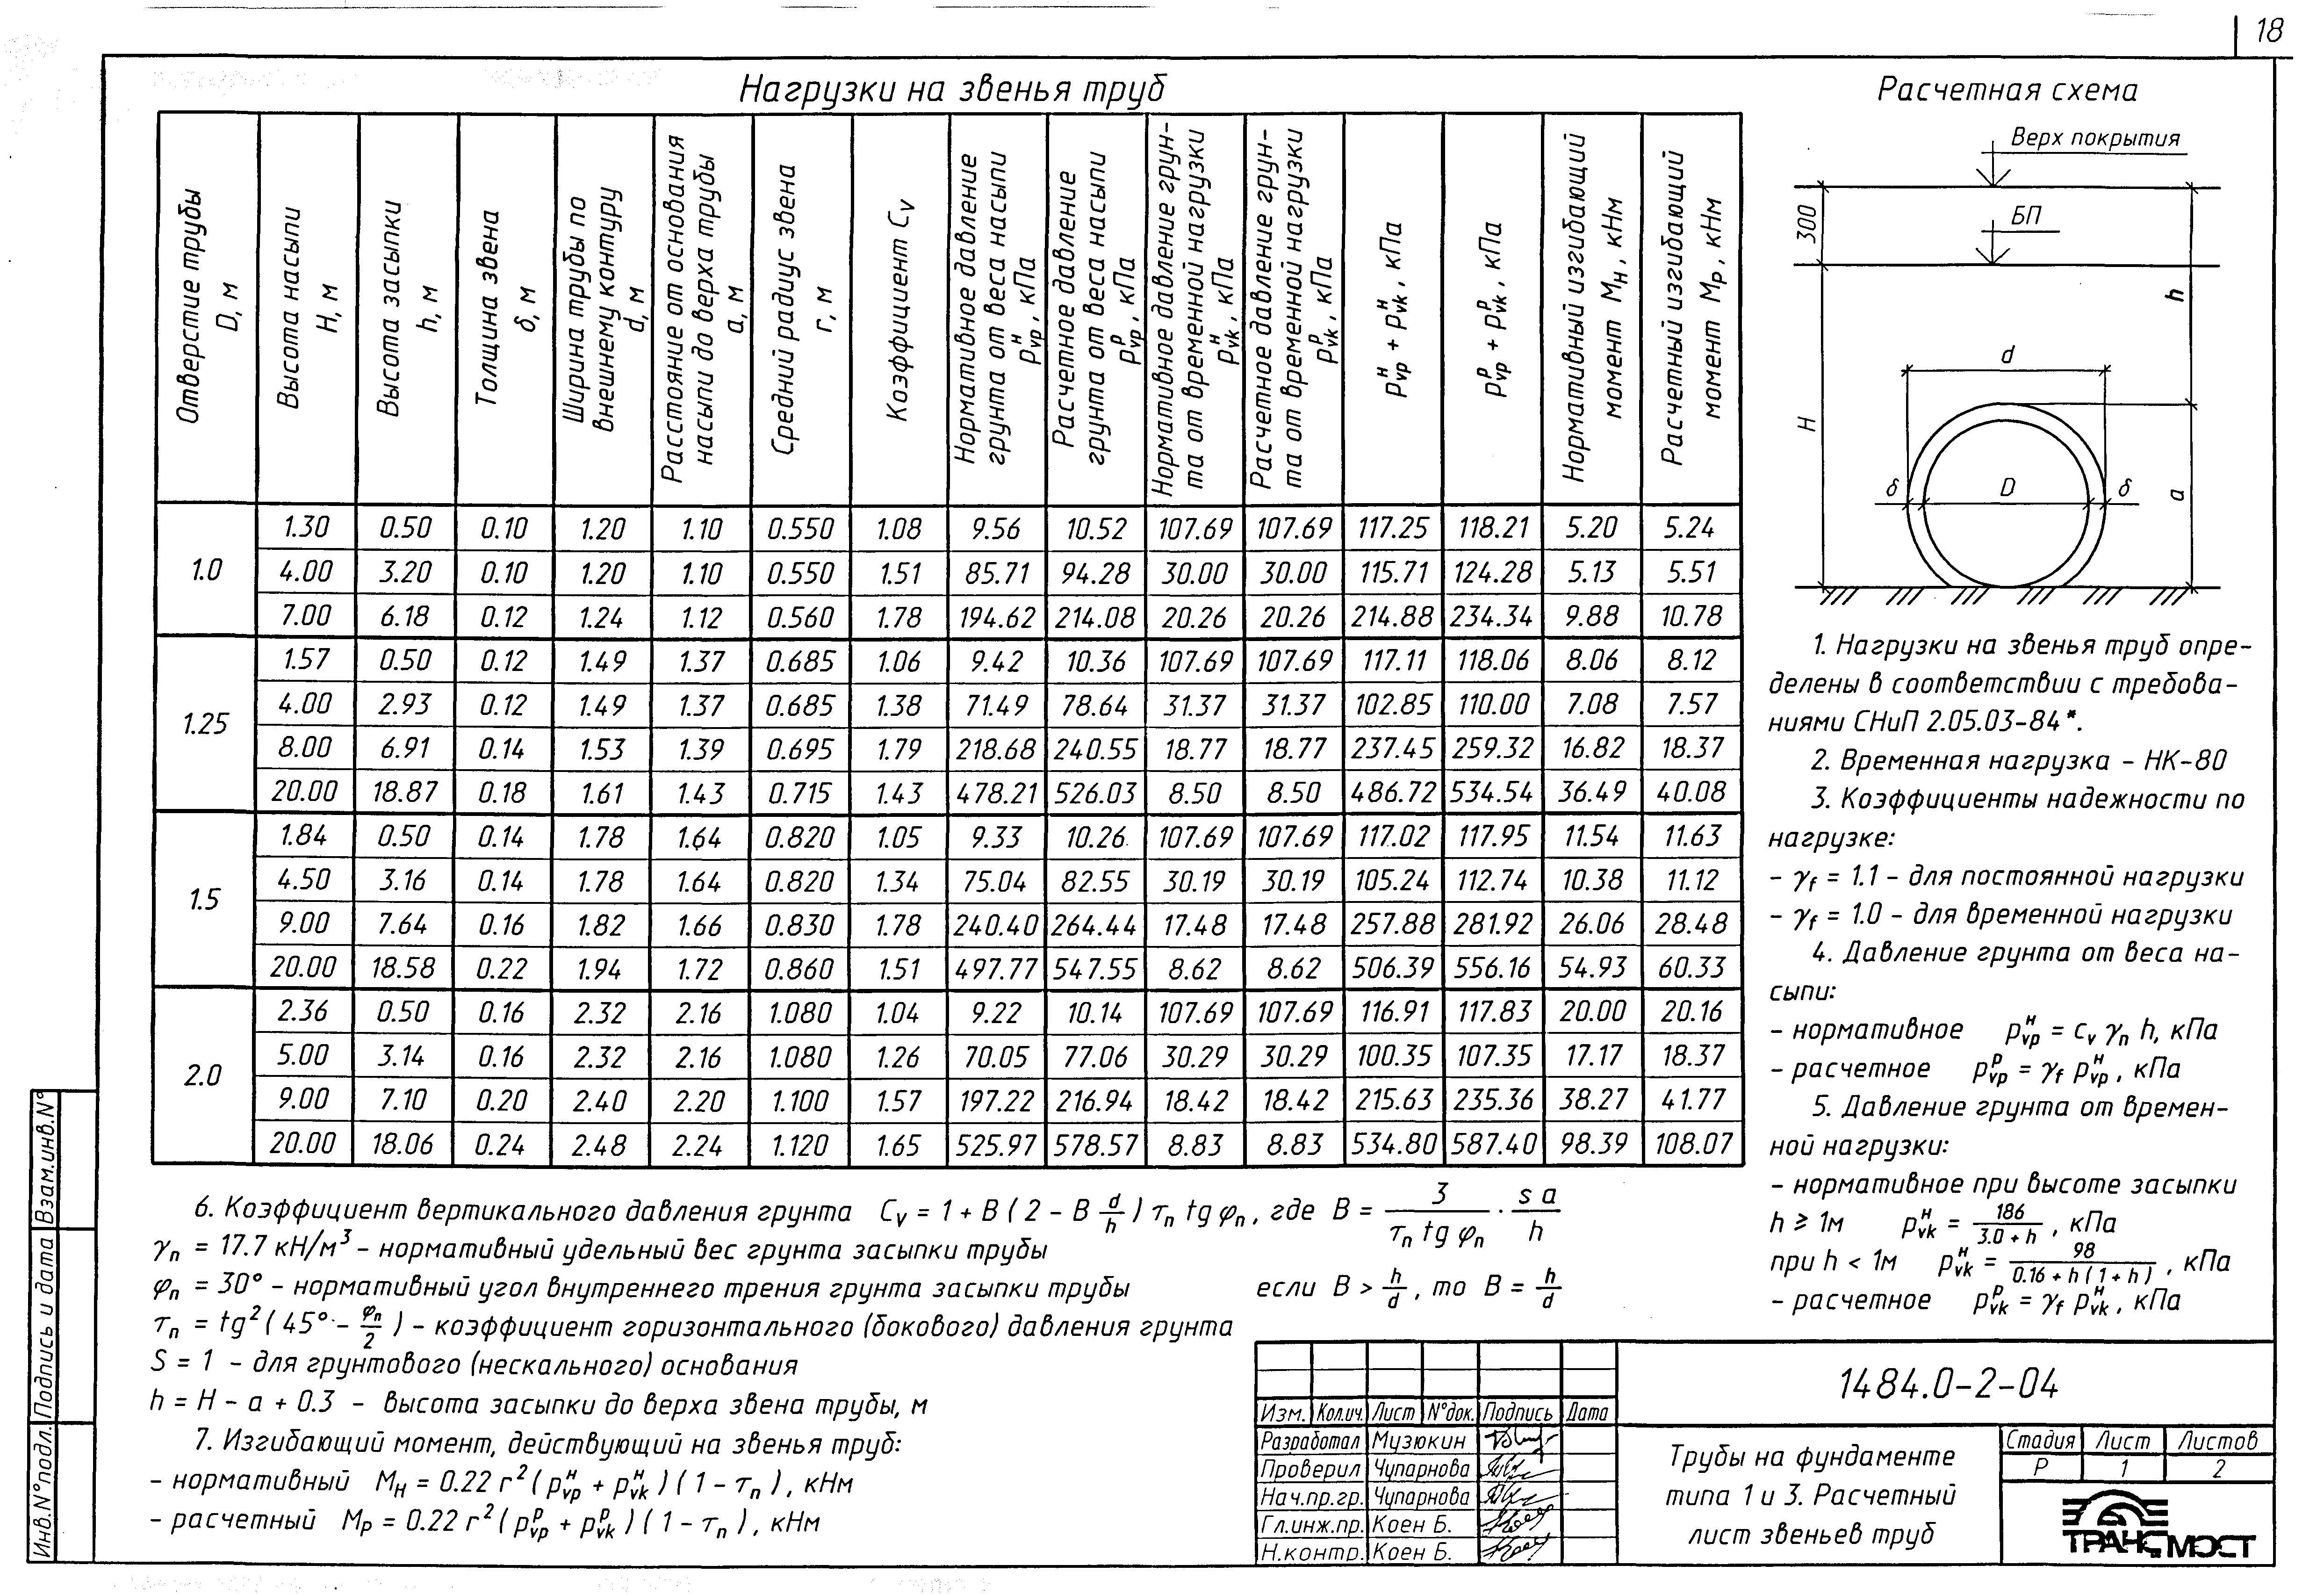 18
Нагрузки на звенья труб
Отверстие трубы D, м
Высота насыпи H, м
Высота засыпки h, м
Толщина звена δ, м
Ширина трубы по внешнему контуру d, м
Расстояние от основания насыпи до верха трубы a, м
Средний радиус звена r, м
Коэффициент Cv
Нормативное давление грунта от веса насыпи pнvp, кПа
Расчетное давление грунта от веса насыпи pрvp, кПа
Нормативное давление грун-та от временной нагрузки pнvk, кПа
Расчетное давление грун-та от временной нагрузки pрvk, кПа
pнvp + pнvk, кПа
pрvp + pрvk, кПа
Нормативный изгибающий момент Mн, кНм
Расчетный изгибающий момент Mр, кНм
1.0
1.30 0.50 0.10 1.20 1.10 0.550 1.08 9.56 10.52 107.69 107.69 117.25 118.21 5.20 5.24
4.00 3.20 0.10 1.20 1.10 0.550 1.51 85.71 94.28 30.00 30.00 115.71 124.28 5.13 5.51
7.00 6.18 0.12 1.24 1.12 0.560 1.78 194.62 214.08 20.26 20.26 214.88 234.34 9.88 10.78
1.25
1.57 0.50 0.12 1.49 1.37 0.685 1.06 9.42 10.36 107.69 107.69 117.11 118.06 8.06 8.12
4.00 2.93 0.12 1.49 1.37 0.685 1.38 71.49 78.64 31.37 31.37 102.85 110.00 7.08 7.57
8.00 6.91 0.14 1.53 1.39 0.695 1.79 218.68 240.55 18.77 18.77 237.45 259.32 16.82 18.37
20.00 18.87 0.18 1.61 1.43 0.715 1.43 478.21 526.03 8.50 8.50 486.72 534.54 36.49 40.08
1.5
1.84 0.50 0.14 1.78 1.64 0.820 1.05 9.33 10.26 107.69 107.69 117.02 117.95 11.54 11.63
4.50 3.16 0.14 1.78 1.64 0.820 1.34 75.04 82.55 30.19 30.19 105.24 112.74 10.38 11.12
9.00 7.64 0.16 1.82 1.66 0.830 1.78 240.40 264.44 17.48 17.48 257.88 281.92 26.06 28.48
20.00 18.58 0.22 1.94 1.72 0.860 1.51 497.77 547.55 8.62 8.62 506.39 556.16 54.93 60.33
2.0
2.36 0.50 0.16 2.32 2.16 1.080 1.04 9.22 10.14 107.69 107.69 116.91 117.83 20.00 20.16
5.00 3.14 0.16 2.32 2.16 1.080 1.26 70.05 77.06 30.29 30.29 100.35 107.35 17.17 18.37
9.00 7.10 0.20 2.40 2.20 1.100 1.57 197.22 216.94 18.42 18.42 215.63 235.36 38.27 41.77
20.00 18.06 0.24 2.48 2.24 1.120 1.65 525.97 578.57 8.83 8.83 534.80 587.40 98.39 108.07
Расчетная схема
Верх покрытия
БП
300
h
d
H
δ
D
δ
a
1. Нагрузки на звенья труб опре-
делены в соответствии с требова-
ниями СНиП 2.05.03-84*.
2. Временная нагрузка - НК-80
3. Коэффициенты надежности по
нагрузке:
- γf = 1.1 - для постоянной нагрузки
- γf = 1.0 - для временной нагрузки
4. Давление грунта от веса на-
сыпи:
- нормативное pнvp = cv γn h, кПа
- расчетное pрvp = γf pнvp, кПа
5. Давление грунта от времен-
ной нагрузки:
- нормативное при высоте засыпки
h ≥ 1м pнvk = 186 / 3.0 + h, кПа
при h < 1м pнvk = 98 / 0.16 + h (1 + h), кПа
- расчетное pрvk = γf pнvk, кПа
6. Коэффициент вертикального давления грунта Cv = 1 + B ( 2 - B d/h ) τn tg φn, где B = 3 / τn tg φn · s a / h
γn = 17.7 кН/м³ - нормативный удельный вес грунта засыпки трубы
φn = 30° - нормативный угол внутреннего трения грунта засыпки трубы
если B > h/d, то B = h/d
τn = tg² ( 45° - φn/2 ) - коэффициент горизонтального (бокового) давления грунта
S = 1 - для грунтового (нескального) основания
h = H - a + 0.3 - высота засыпки до верха звена трубы, м
7. Изгибающий момент, действующий на звенья труб:
- нормативный Mн = 0.22 r² ( pнvp + pнvk ) ( 1 - τn ), кНм
- расчетный Mр = 0.22 r² ( pрvp + pрvk ) ( 1 - τn ), кНм
Взам.инв.N°
Подпись и дата
Инв.N°подл.
Изм. Кол.уч. Лист N°док. Подпись Дата
Разработал Музюкин
Проверил Чупарнова
Нач.пр.гр. Чупарнова
Гл.инж.пр. Коен Б.
Н.контр. Коен Б.
1484.0-2-04
Трубы на фундаменте
типа 1 и 3. Расчетный
лист звеньев труб
Стадия Лист Листов
Р 1 2
ТРАНСМОСТ